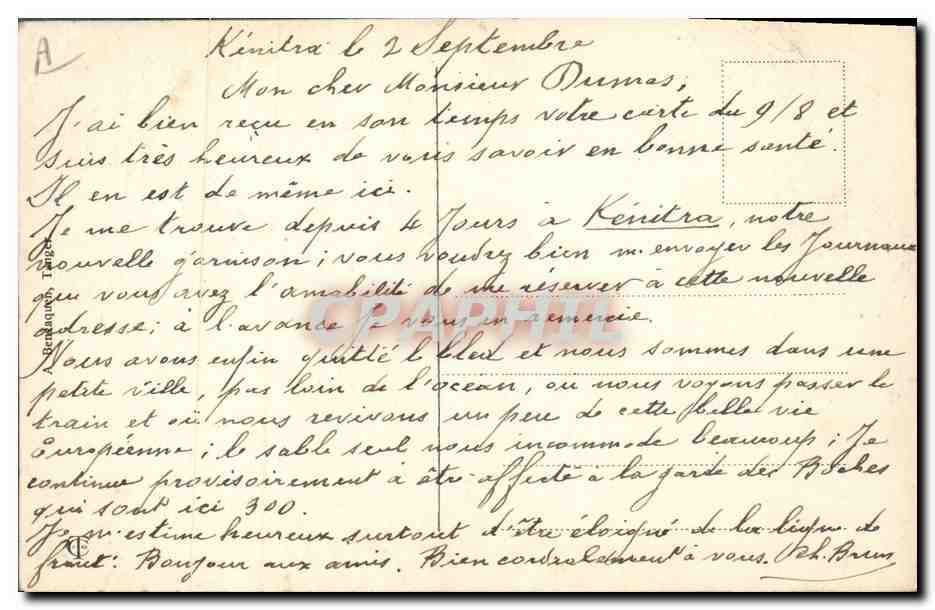 A
Kénitra le 2 Septembre
Mon cher Monsieur Dumas,
J'ai bien reçu en son temps votre carte du 9/8 et
suis très heureux de vous savoir en bonne santé.
Il en est de même ici.
Je me trouve depuis 4 Jours à Kénitra, notre
nouvelle garnison; vous voudrez bien m'envoyer les Journaux
que vous avez l'amabilité de me réserver à cette nouvelle
adresse; à l'avance je vous en remercie.
Nous avons enfin quitté le bled et nous sommes dans une
petite ville, pas loin de l'océan, où nous voyons passer le
train et où nous revivons un peu de cette belle vie
Européenne; le sable seul nous incommode beaucoup; Je
continue provisoirement à être affecté à la garde des Boches
qui sont ici 300.
Je m'estime heureux surtout d'être éloigné de la ligne de
front. Bonjour aux amis. Bien cordialement à vous. Ch. Brun
Bendaquen, Tanger
CPAPHIL